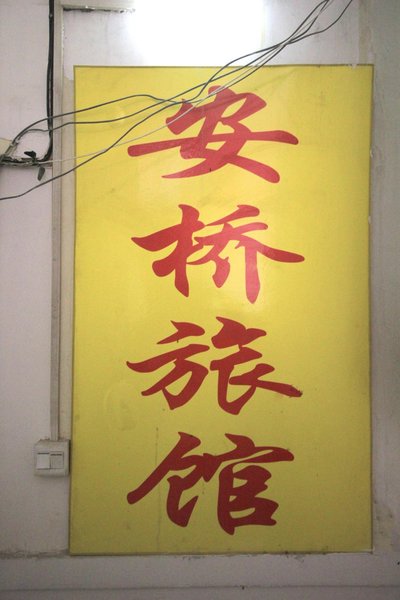 安桥旅馆